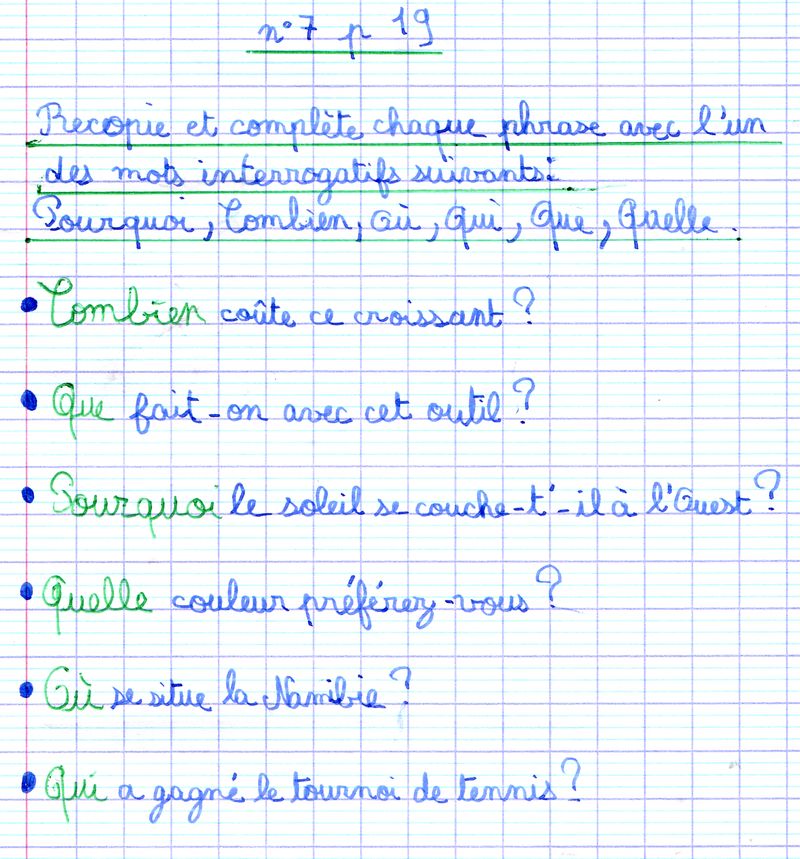 n°7 p 19
Recopie et complète chaque phrase avec l'un
des mots interrogatifs suivants:
Pourquoi, Combien, Où, Qui, Que, Quelle.
• Combien coûte ce croissant ?
• Que fait-on avec cet outil ?
• Pourquoi le soleil se couche-t'-il à l'Ouest ?
• Quelle couleur préférez-vous ?
• Où se situe la Namibie ?
• Qui a gagné le tournoi de tennis ?